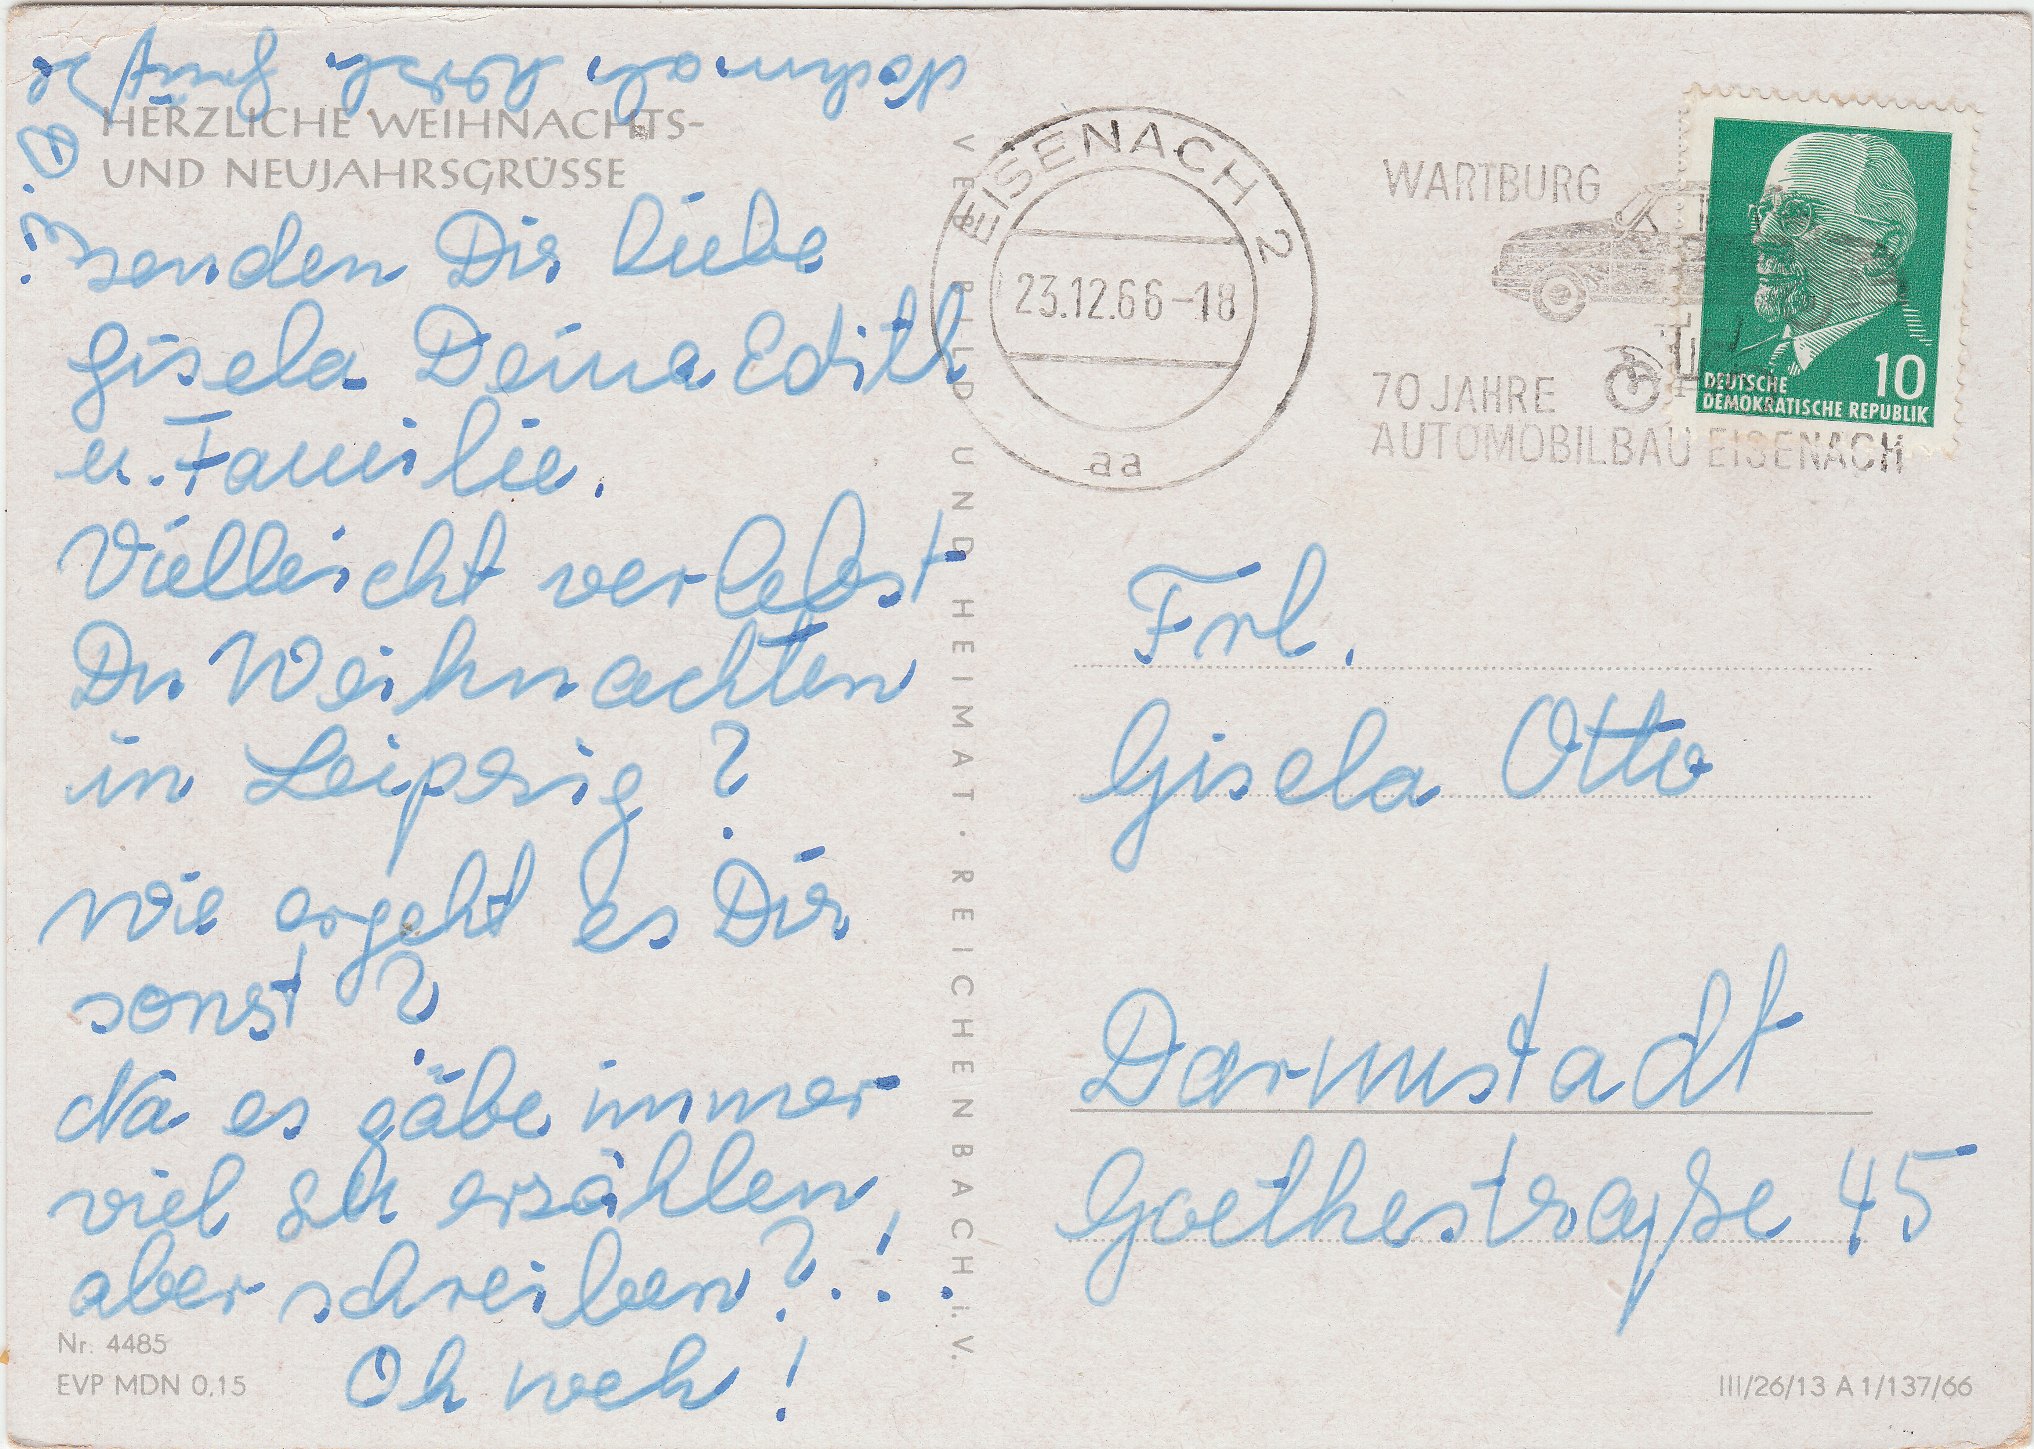 Nochmals herzl. Grüße
HERZLICHE WEIHNACHTS-
UND NEUJAHRSGRÜSSE
senden Dir liebe
Gisela Deine Edith
u. Familie.
Vielleicht verlebst
Du Weihnachten
in Leipzig?
Wie ergeht es Dir
sonst?
Na es gäbe immer
viel zu erzählen,
aber schreiben?.!.
Oh weh!
Nr. 4485
EVP MDN 0,15
VEB BILD UND HEIMAT · REICHENBACH i. V.
EISENACH 2
23.12.66-18
aa
WARTBURG
70 JAHRE
AUTOMOBILBAU EISENACH
10
DEUTSCHE
DEMOKRATISCHE REPUBLIK
Frl.
Gisela Otto
Darmstadt
Goethestraße 45
III/26/13 A 1/137/66